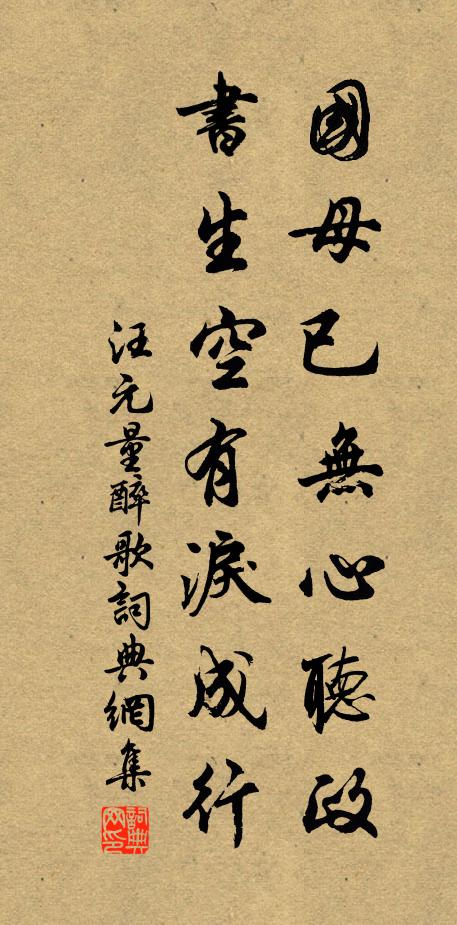 國母已無心聽政
書生空有淚成行
汪元量醉歌詞典網集
詞典網印